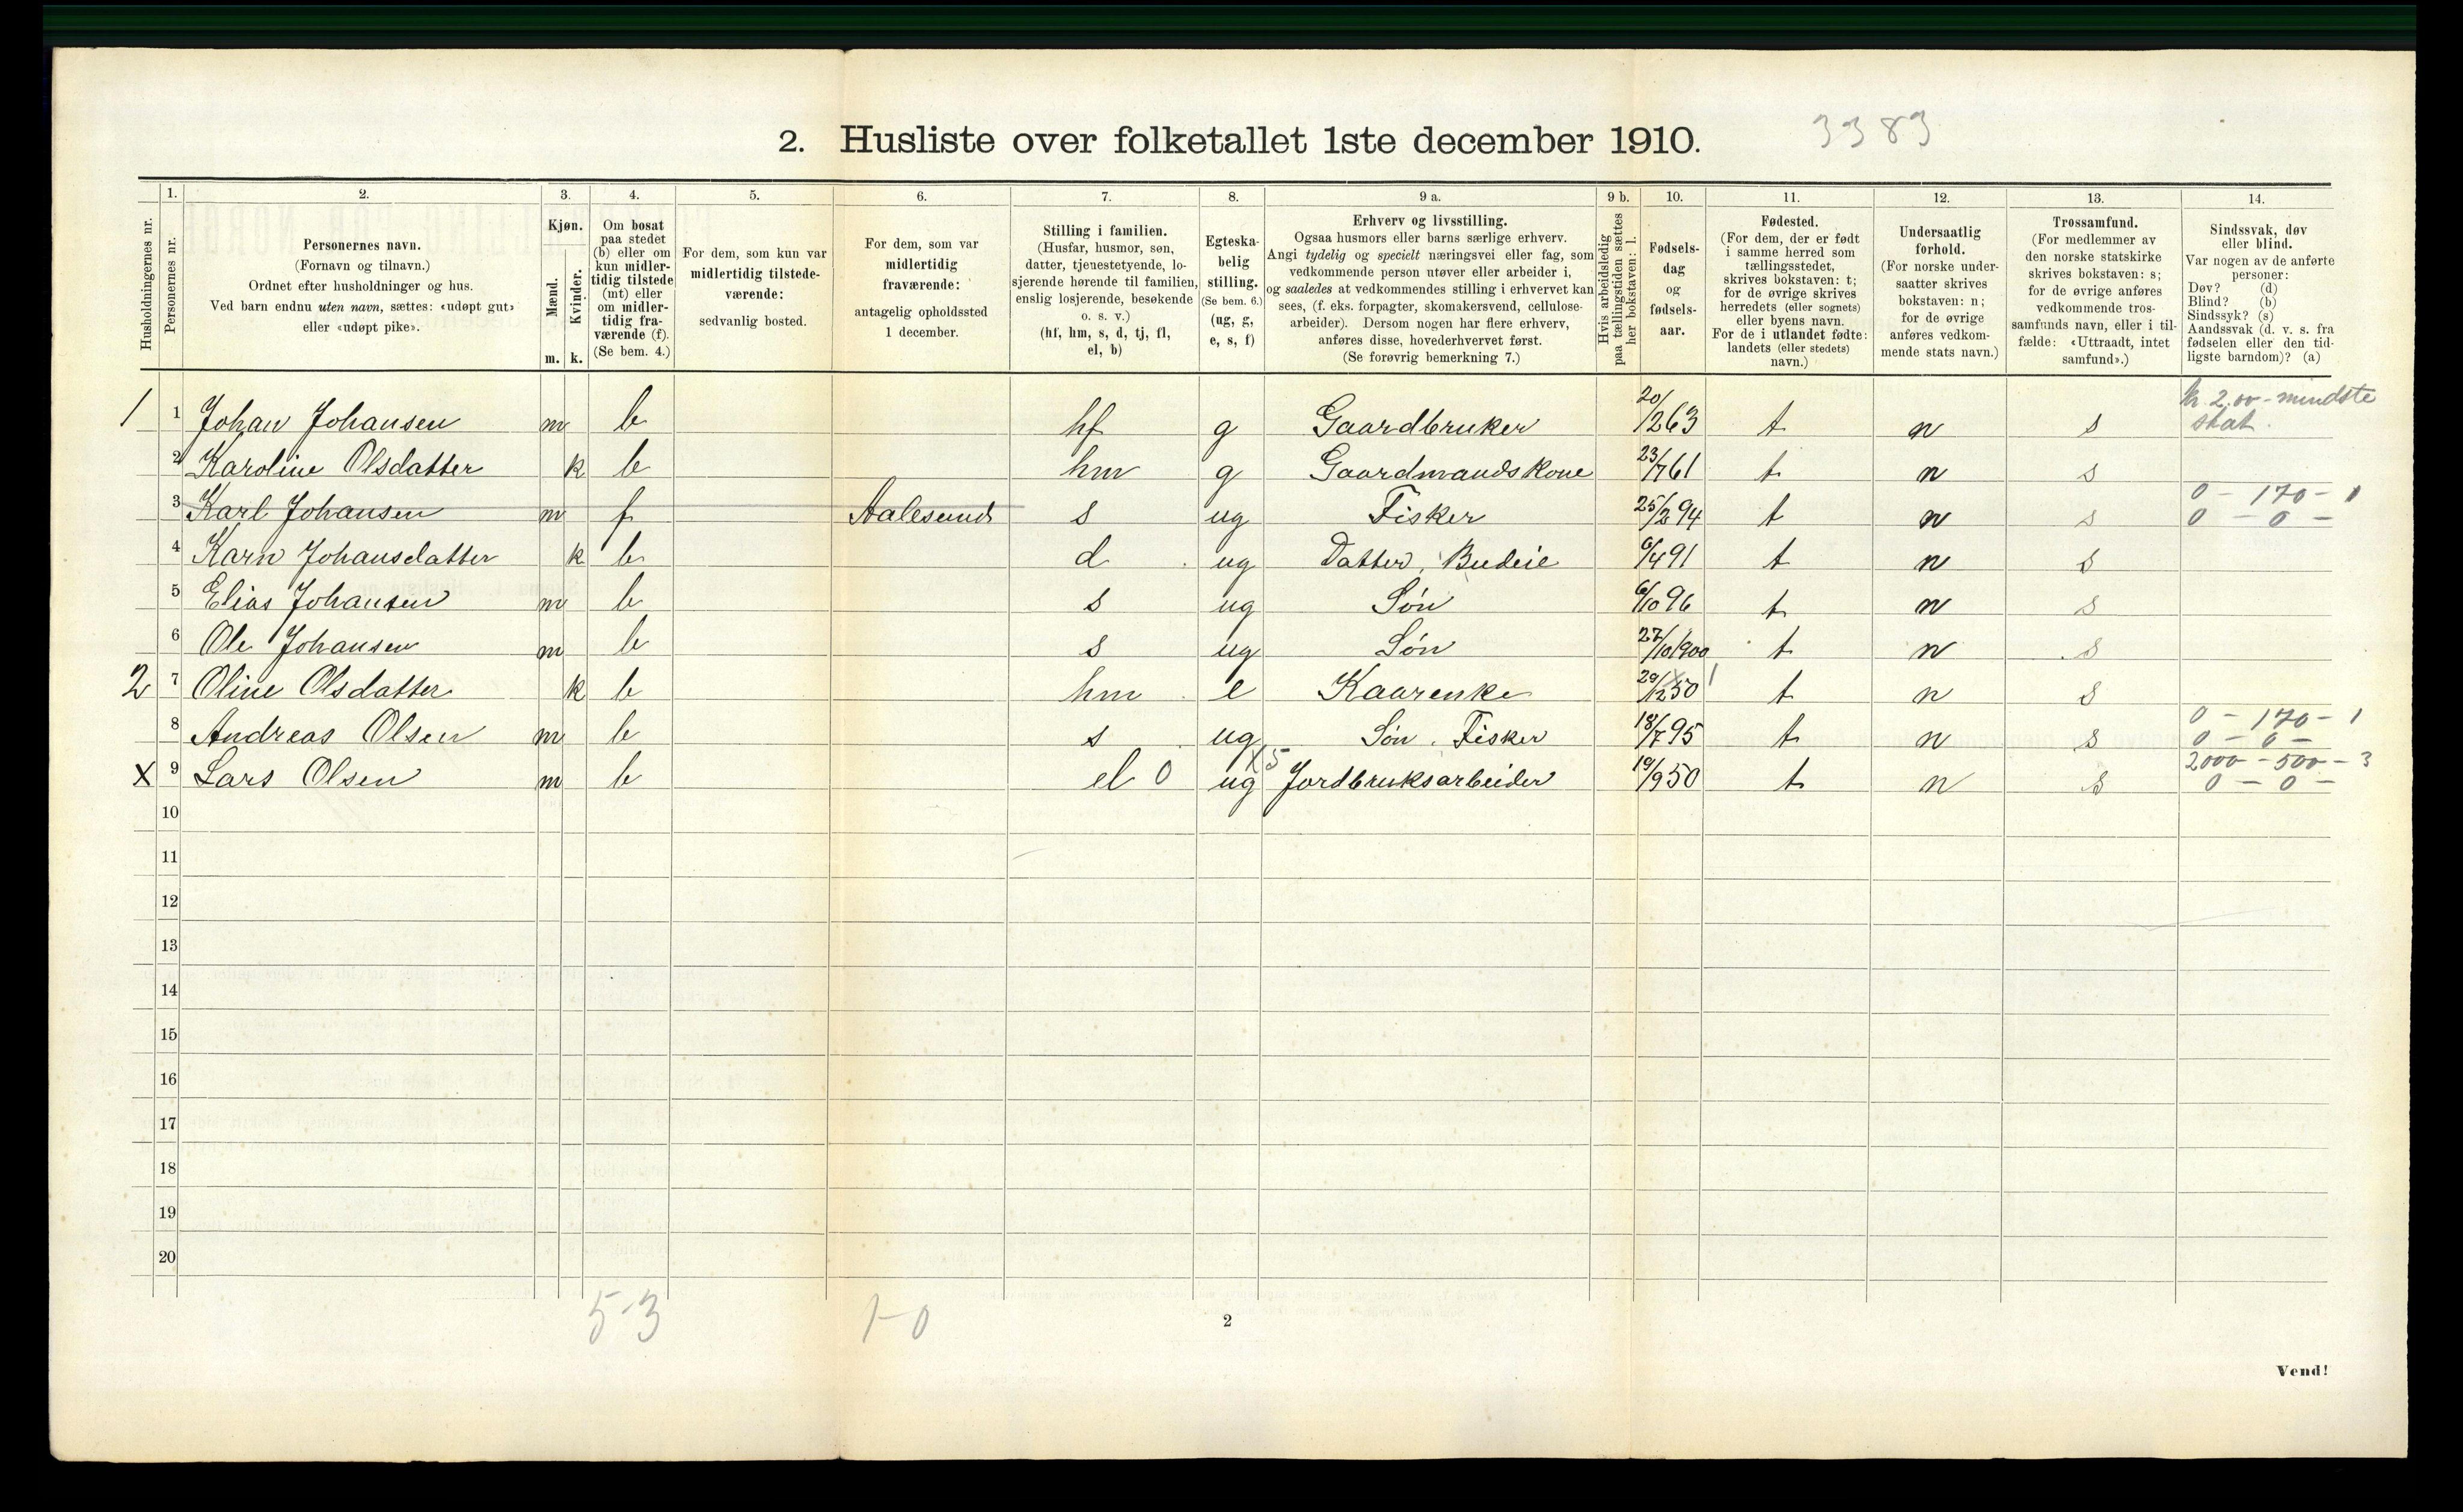 2. Husliste over folketallet 1ste december 1910. 3383
1. 2. 3. 4. 5. 6. 7. 8. 9 a. 9 b. 10. 11. 12. 13. 14.
Husholdningernes nr.
Personernes nr.
Personernes navn.
(Fornavn og tilnavn.)
Ordnet efter husholdninger og hus.
Ved barn endnu uten navn, sættes: «udøpt gut»
eller «udøpt pike».
Kjøn.
Mænd.
Kvinder.
m. k.
Om bosat
paa stedet
(b) eller om
kun midler-
tidig tilstede
(mt) eller
om midler-
tidig fra-
værende (f).
(Se bem. 4.)
For dem, som kun var
midlertidig tilstede-
værende:
sedvanlig bosted.
For dem, som var
midlertidig
fraværende:
antagelig opholdssted
1 december.
Stilling i familien.
(Husfar, husmor, søn,
datter, tjenestetyende, lo-
sjerende hørende til familien,
enslig losjerende, besøkende
o. s. v.)
(hf, hm, s, d, tj, fl,
el, b)
Egteska-
belig
stilling.
(Se bem. 6.)
(ug, g,
e, s, f)
Erhverv og livsstilling.
Ogsaa husmors eller barns særlige erhverv.
Angi tydelig og specielt næringsvei eller fag, som
vedkommende person utøver eller arbeider i,
og saaledes at vedkommendes stilling i erhvervet kan
sees, (f. eks. forpagter, skomakersvend, cellulose-
arbeider). Dersom nogen har flere erhverv,
anføres disse, hovederhvervet først.
(Se forøvrig bemerkning 7.)
Hvis arbeidsledig
paa tællingstiden sættes
her bokstaven: l.
Fødsels-
dag
og
fødsels-
aar.
Fødested.
(For dem, der er født
i samme herred som
tællingsstedet,
skrives bokstaven: t;
for de øvrige skrives
herredets (eller sognets)
eller byens navn.
For de i utlandet fødte:
landets (eller stedets)
navn.)
Undersaatlig
forhold.
(For norske under-
saatter skrives
bokstaven: n;
for de øvrige
anføres vedkom-
mende stats navn.)
Trossamfund.
(For medlemmer av
den norske statskirke
skrives bokstaven: s;
for de øvrige anføres
vedkommende tros-
samfunds navn, eller i til-
fælde: «Uttraadt, intet
samfund».)
Sindssvak, døv
eller blind.
Var nogen av de anførte
personer:
Døv? (d)
Blind? (b)
Sindssyk? (s)
Aandssvak (d. v. s. fra
fødselen eller den tid-
ligste barndom)? (a)
1 1 Johan Johansen m b hf g Gaardbruker 20/12 63 t n s kr 2.00 - mindste skat.
2 Karoline Olsdatter k b hm g Gaardmandskone 23/7 61 t n s
3 Karl Johansen m f Aalesund s ug Fisker 25/2 94 t n s 0 - 170 - 1 0 - 0 -
4 Karn Johansdatter k b d ug Datter, Budeie 6/4 91 t n s
5 Elias Johansen m b s ug Søn 6/10 96 t n s
6 Ole Johansen m b s ug Søn 27/10 1900 t n s
2 7 Oline Olsdatter k b hm e Kaarenke 29/12 50 t n s
8 Andreas Olsen m b s ug Søn. Fisker 18/7 95 t n s 0 - 170 - 1 0 - 0 -
x 9 Lars Olsen m b el 0 ug x5 Jordbruksarbeider 19/9 50 t n s 2000 - 500 - 3 0 - 0 -
10
11
12
13
14
15
16
17
18
19
20
5-3 1-0
2
Vend!